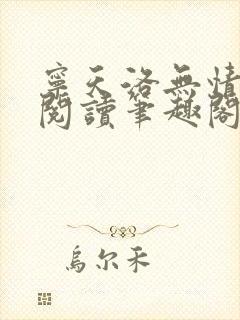 寧天洛無情
閱讀筆趣閣
烏尔禾